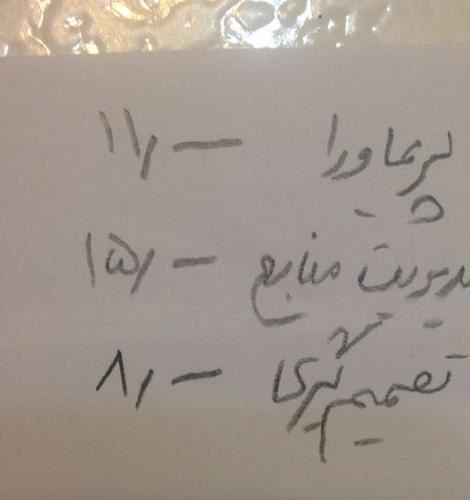 پریماورا ۱۱٫ـ
مدیریت منابع ۱۵٫ـ
تصمیم گیری ۸٫ـ